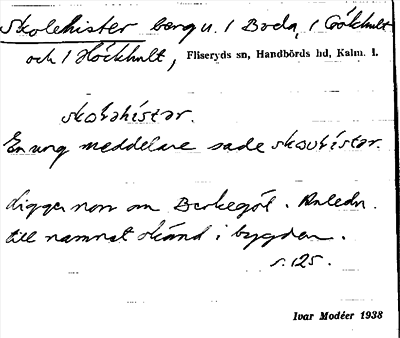 Skolehister bergu. 1 Boda, 1 Gökhult
och 1 Höckhult, Fliseryds sn, Handbörds hd, Kalm. l.
skoləhistər.
En ung meddelare sade skouhistər.
Ligger norr om Barkegöl. Anledn.
till namnet okänd i bygden.
s. 125.
Ivar Modéer 1938